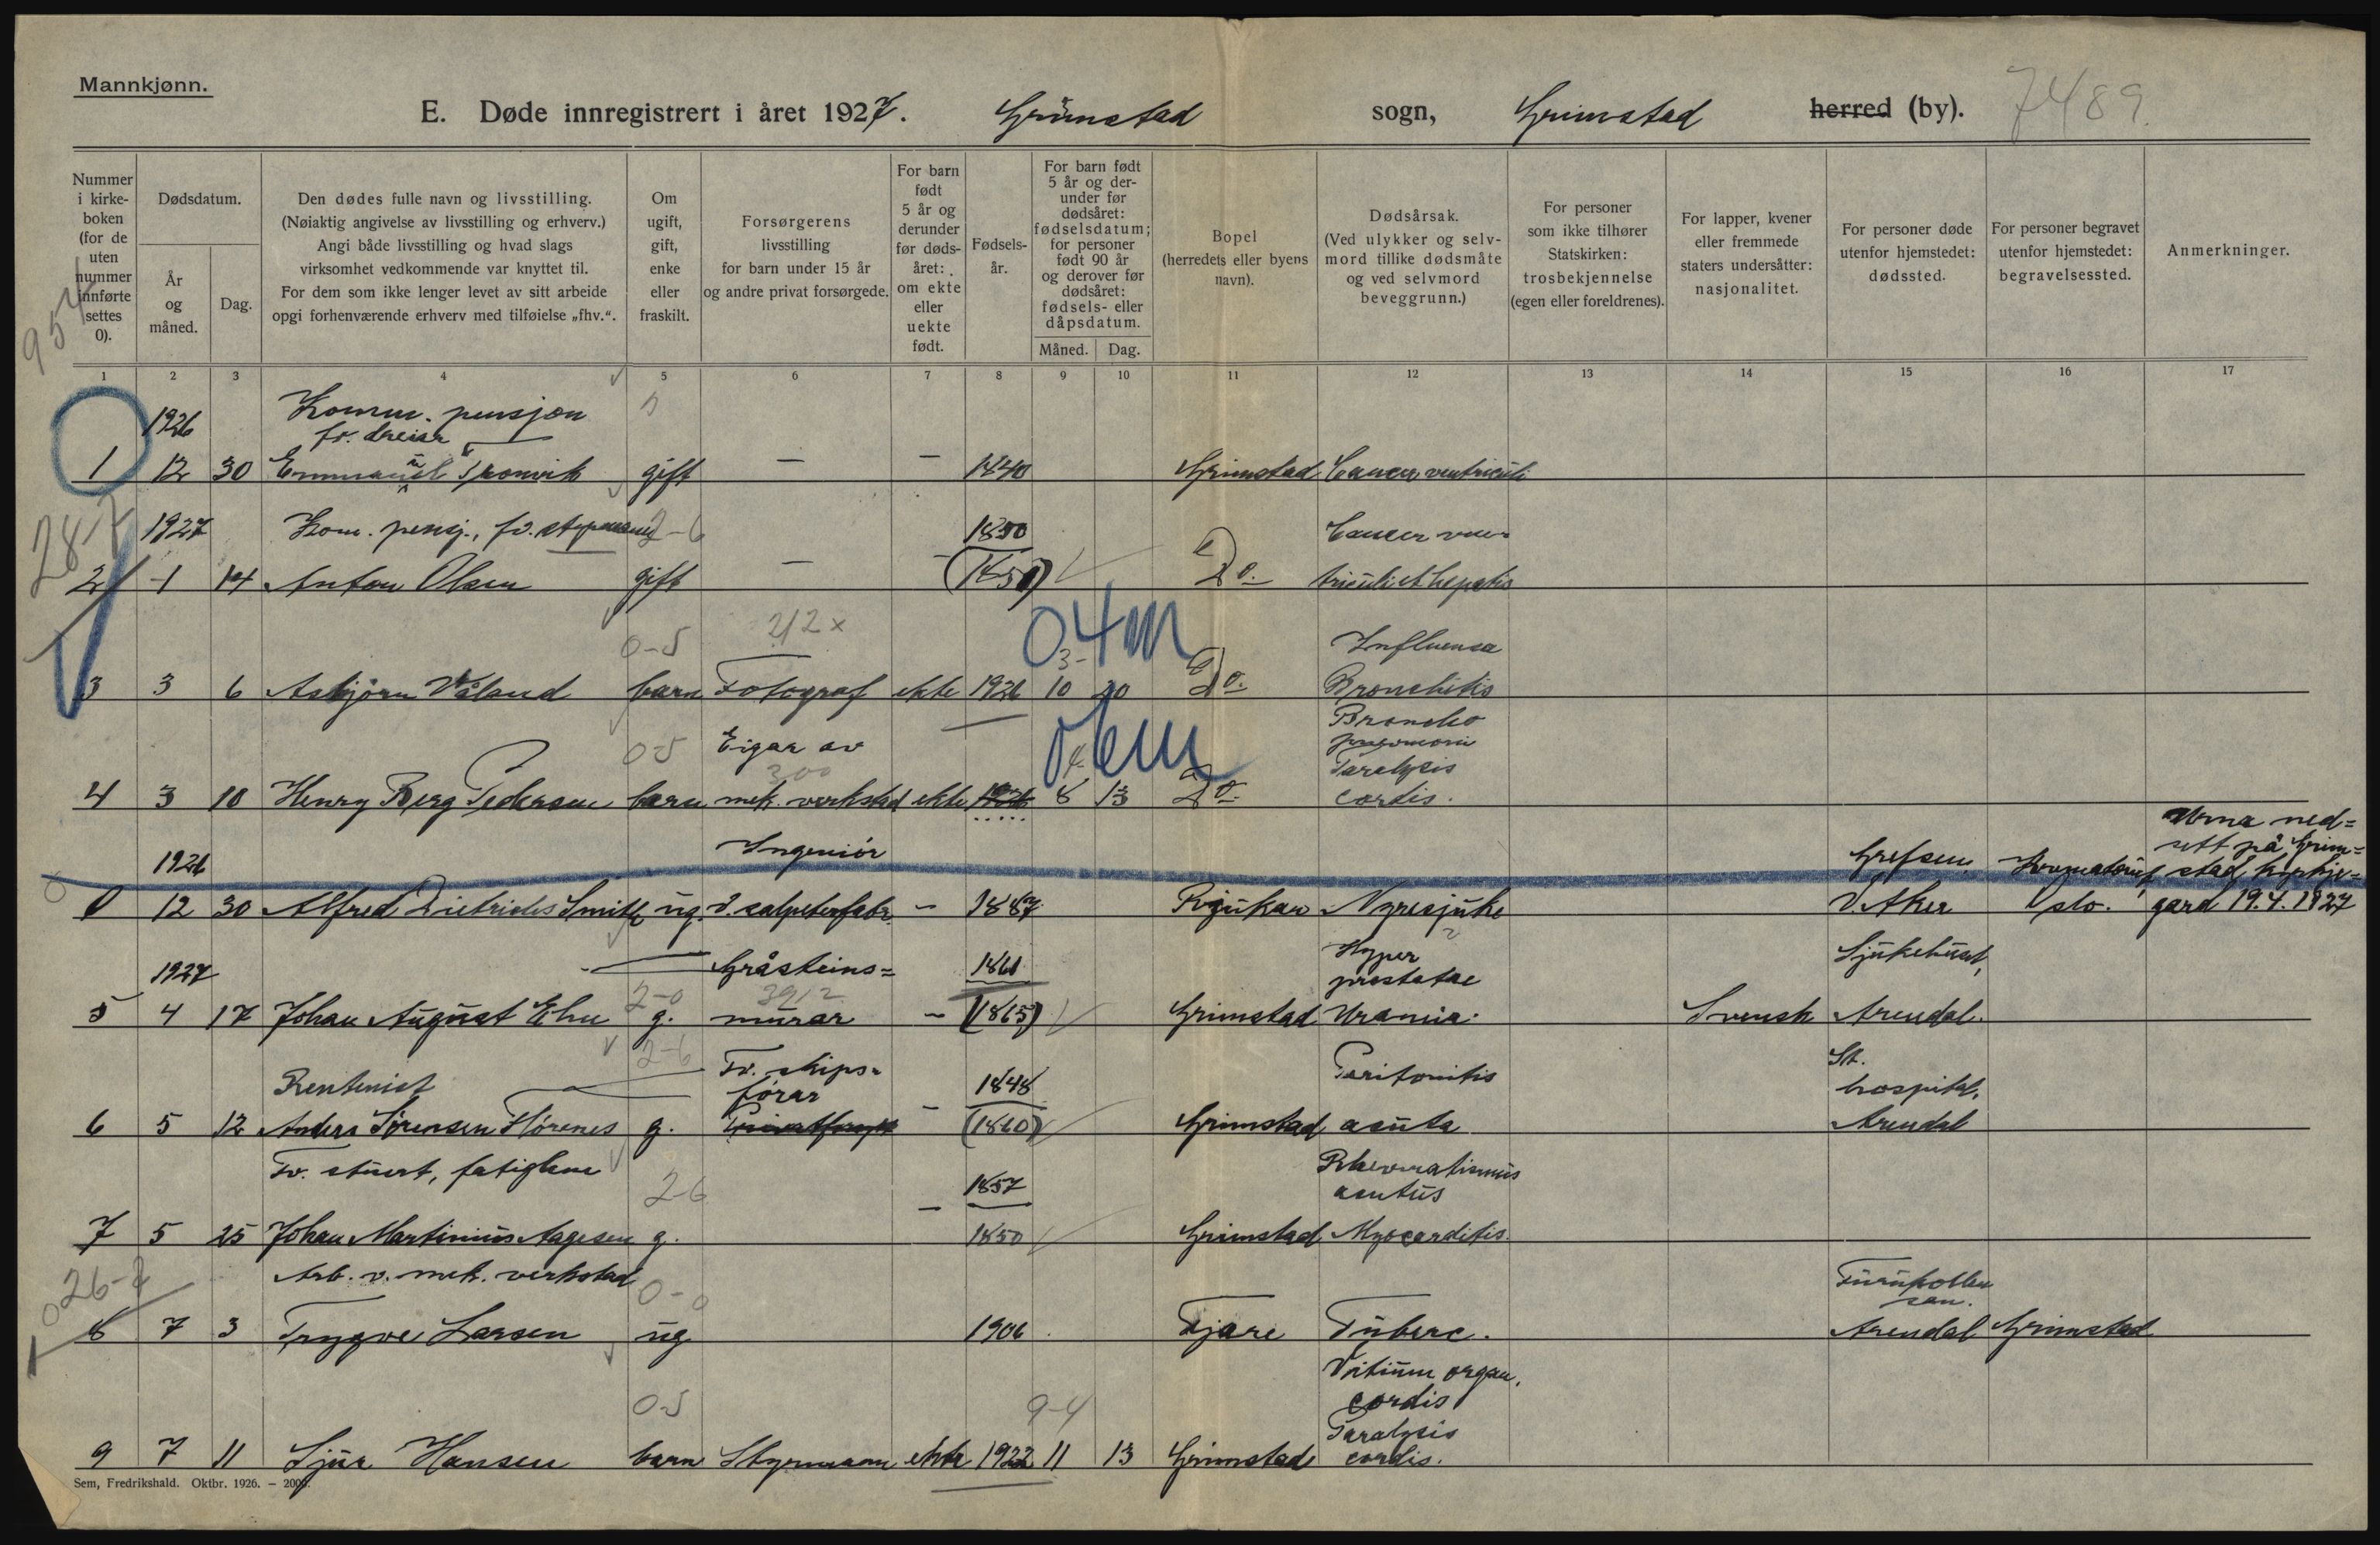 Mannkjønn.
E. Døde innregistrert i året 1927. Grimstad sogn, Grimstad herred (by). 7489
Nummer i kirkeboken (for de uten nummer innførte settes 0).
Dødsdatum.
År og måned.
Dag.
Den dødes fulle navn og livsstilling.
(Nøiaktig angivelse av livsstilling og erhverv.)
Angi både livsstilling og hvad slags
virksomhet vedkommende var knyttet til.
For dem som ikke lenger levet av sitt arbeide
opgi forhenværende erhverv med tilføielse „fhv.“.
Om ugift, gift, enke eller fraskilt.
Forsørgerens livsstilling for barn under 15 år og andre privat forsørgede.
For barn født 5 år og derunder før dødsåret: om ekte eller uekte født.
Fødselsår.
For barn født 5 år og derunder før dødsåret: fødselsdatum; for personer født 90 år og derover før dødsåret: fødsels- eller dåpsdatum.
Måned. Dag.
Bopel (herredets eller byens navn).
Dødsårsak. (Ved ulykker og selvmord tillike dødsmåte og ved selvmord beveggrunn.)
For personer som ikke tilhører Statskirken: trosbekjennelse (egen eller foreldrenes).
For lapper, kvener eller fremmede staters undersåtter: nasjonalitet.
For personer døde utenfor hjemstedet: dødssted.
For personer begravet utenfor hjemstedet: begravelsessted.
Anmerkninger.
1 2 3 4 5 6 7 8 9 10 11 12 13 14 15 16 17
1926 Komm. pensjon
fv. dreiar
1 12 30 Emmanuel Tronvik gift — — 1840 Grimstad Cancer ventriculi
28-7
1927 Kom. pensj., fv. 2-6 1850 Cancer ven-
2 1 14 Anton Olsen gift — - (1851) Do. triculi et hepatis
0-5 212x 04m Influensa
3 3 6 Asbjørn Våland barn Fotograf ekte 1926 10 20 Do. Bronchitis
0-5 Eigar av 06m Broncho
300 pneumoni
Paralysis
4 3 10 Henry Berg Pedersen barn mek. verkstad ekte 1926 8 13 Do. cordis.
1926 Ingeniør Grefsen, Krematoriet Urna ned=
sett på Grim=
stad kyrkje=
0 12 30 Alfred Dietrichs Smith ug. v. salpeterfabr. - 1887 Rjukan Nyresjuke V. Aker Oslo. gard 19.4.1927
1927 Gråsteins= 1861 Hyper Sjukehuset,
2-0 3912 prostatae
5 4 17 Johan August Ehn g. murar - (1865) Grimstad Uramia. Svensk Arendal.
2-6 Fv. skips= St.
Rentenist førar 1848 Peritonitis hospital,
6 5 12 Anders Sørensen Hørenes g. - (1860) Grimstad acuta Arendal
Fv. stuert, fatiglem 2-6 1857 Rheumatismus
acutus
7 5 25 Johan Martinius Aagesen g. - 1850 Grimstad Myocarditis.
26-7
Arb. v. mek. verkstad 0-0 Furukollen
san.
8 7 3 Trygve Larsen ug 1906 Fjære Tuberc. Arendal Grimstad
Vitium organ.
0-5 9-4 cordis
Paralysis
9 7 11 Sjur Hansen barn Styrmann ekte 1922 11 13 Grimstad cordis.
Sem, Fredrikshald. Oktbr. 1926. – 2000.